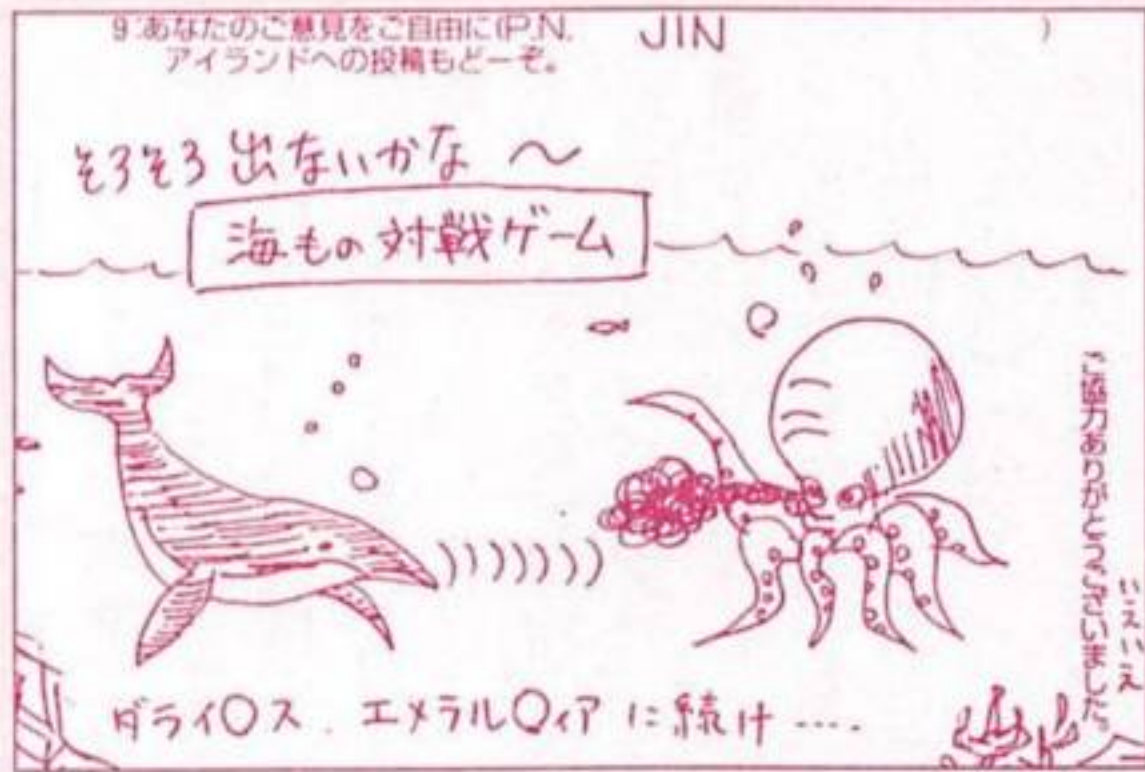 9.あなたのご意見をご自由に(P.N. JIN )
アイランドへの投稿もどーぞ。
そろそろ 出ないかな 〜
海もの対戦ゲーム
ダライ〇ス. エメラル〇ィア に続け ‥‥
ご協力ありがとうございました。
いえいえ